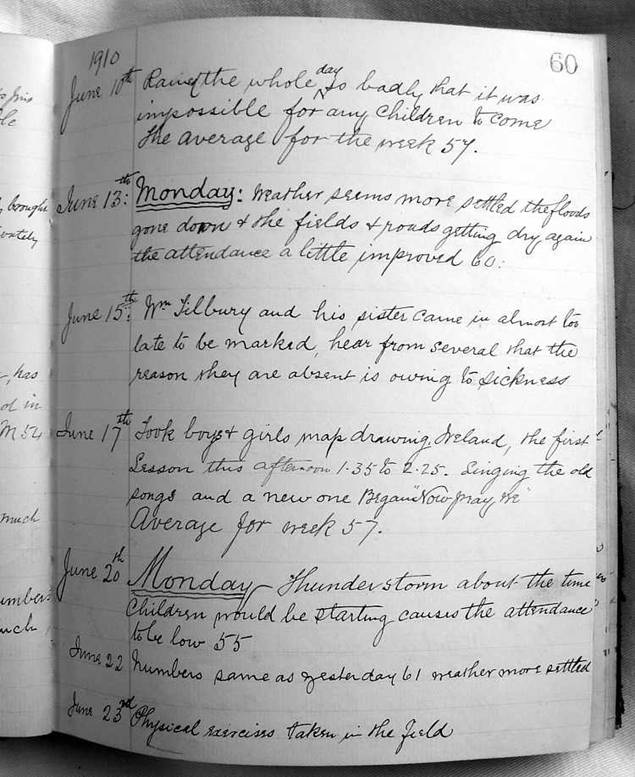 1910
60
June 10th Rained the whole day so badly that it was
impossible for any children to come
The average for the week 57.
June 13th: Monday: Weather seems more settled the floods
gone down & the fields & roads getting dry again
the attendance a little improved 60.
June 15th: Wm Tilbury and his sister came in almost too
late to be marked, hear from several that the
reason they are absent is owing to sickness
June 17th Took boys & girls map drawing, Ireland, the first
Lesson this afternoon 1.35 to 2.25. Singing the old
songs and a new one Began "Now pray we"
Average for week 57.
June 20th Monday Thunderstorm about the time
Children would be starting causes the attendance
to be low 55
June 22 Numbers same as yesterday 61 weather more settled
June 23rd Physical exercises taken in the field
brought
, has
od in
much